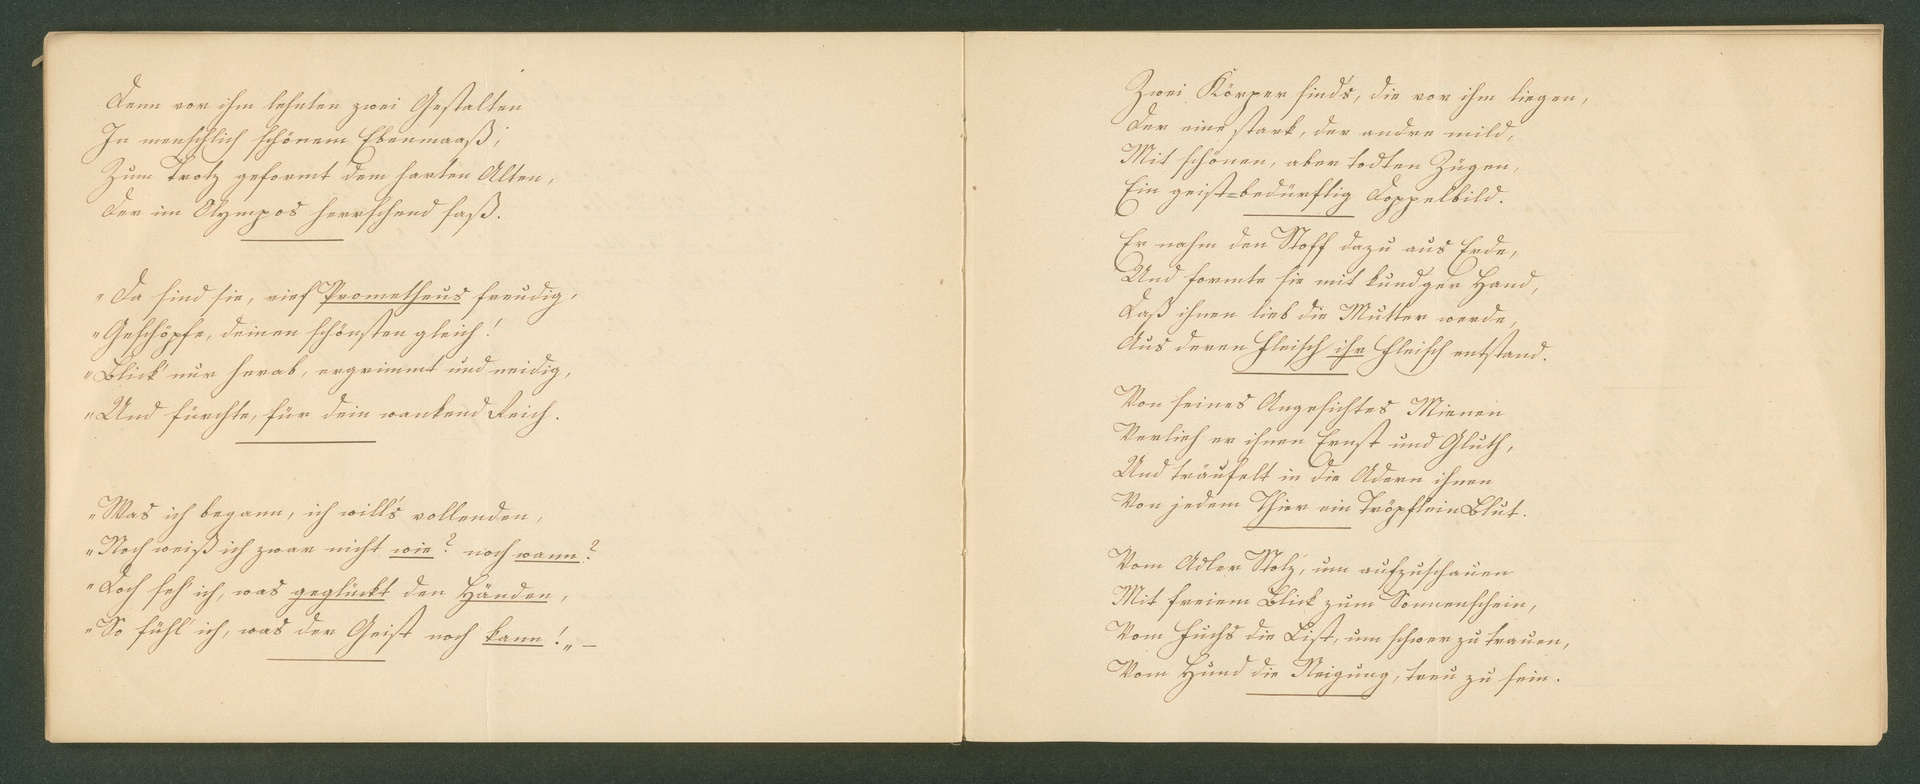 Denn vor ihm lehnten zwei Gestalten
In menschlich schönem Ebenmaaß;
Zum Trotz geformt dem harten Alten,
Der im Olympos herrschend saß.
„Da sind sie, rief Prometheus freudig,
„Geschöpfe, deinen schönsten gleich!
„Blick nur herab, ergrimmt und neidig,
„Und fürchte, für dein wankend Reich.
„Was ich begann, ich will's vollenden,
„Noch weiß ich zwar nicht wie? noch wann?
„Doch seh' ich, was geglückt den Händen,
„So fühl' ich, was der Geist noch kann!„ —
Zwei Körper sind's, die vor ihm liegen,
Der eine stark, der andre mild,
Mit schönen, aber todten Zügen,
Ein geist=bedürftig Doppelbild.
Er nahm den Stoff dazu aus Erde,
Und formte sie mit kund'ger Hand,
Daß ihnen lieb die Mutter werde,
Aus deren Fleisch ihr Fleisch entstand.
Von seines Angesichtes Mienen
Verlieh er ihnen Ernst und Gluth,
Und träufelt in die Adern ihnen
Von jedem Thier ein Tröpflein Blut.
Vom Adler Stolz, um aufzuschauen
Mit freiem Blick zum Sonnenschein,
Vom Fuchs die List, um schwer zu trauen,
Vom Hund die Neigung, treu zu sein.